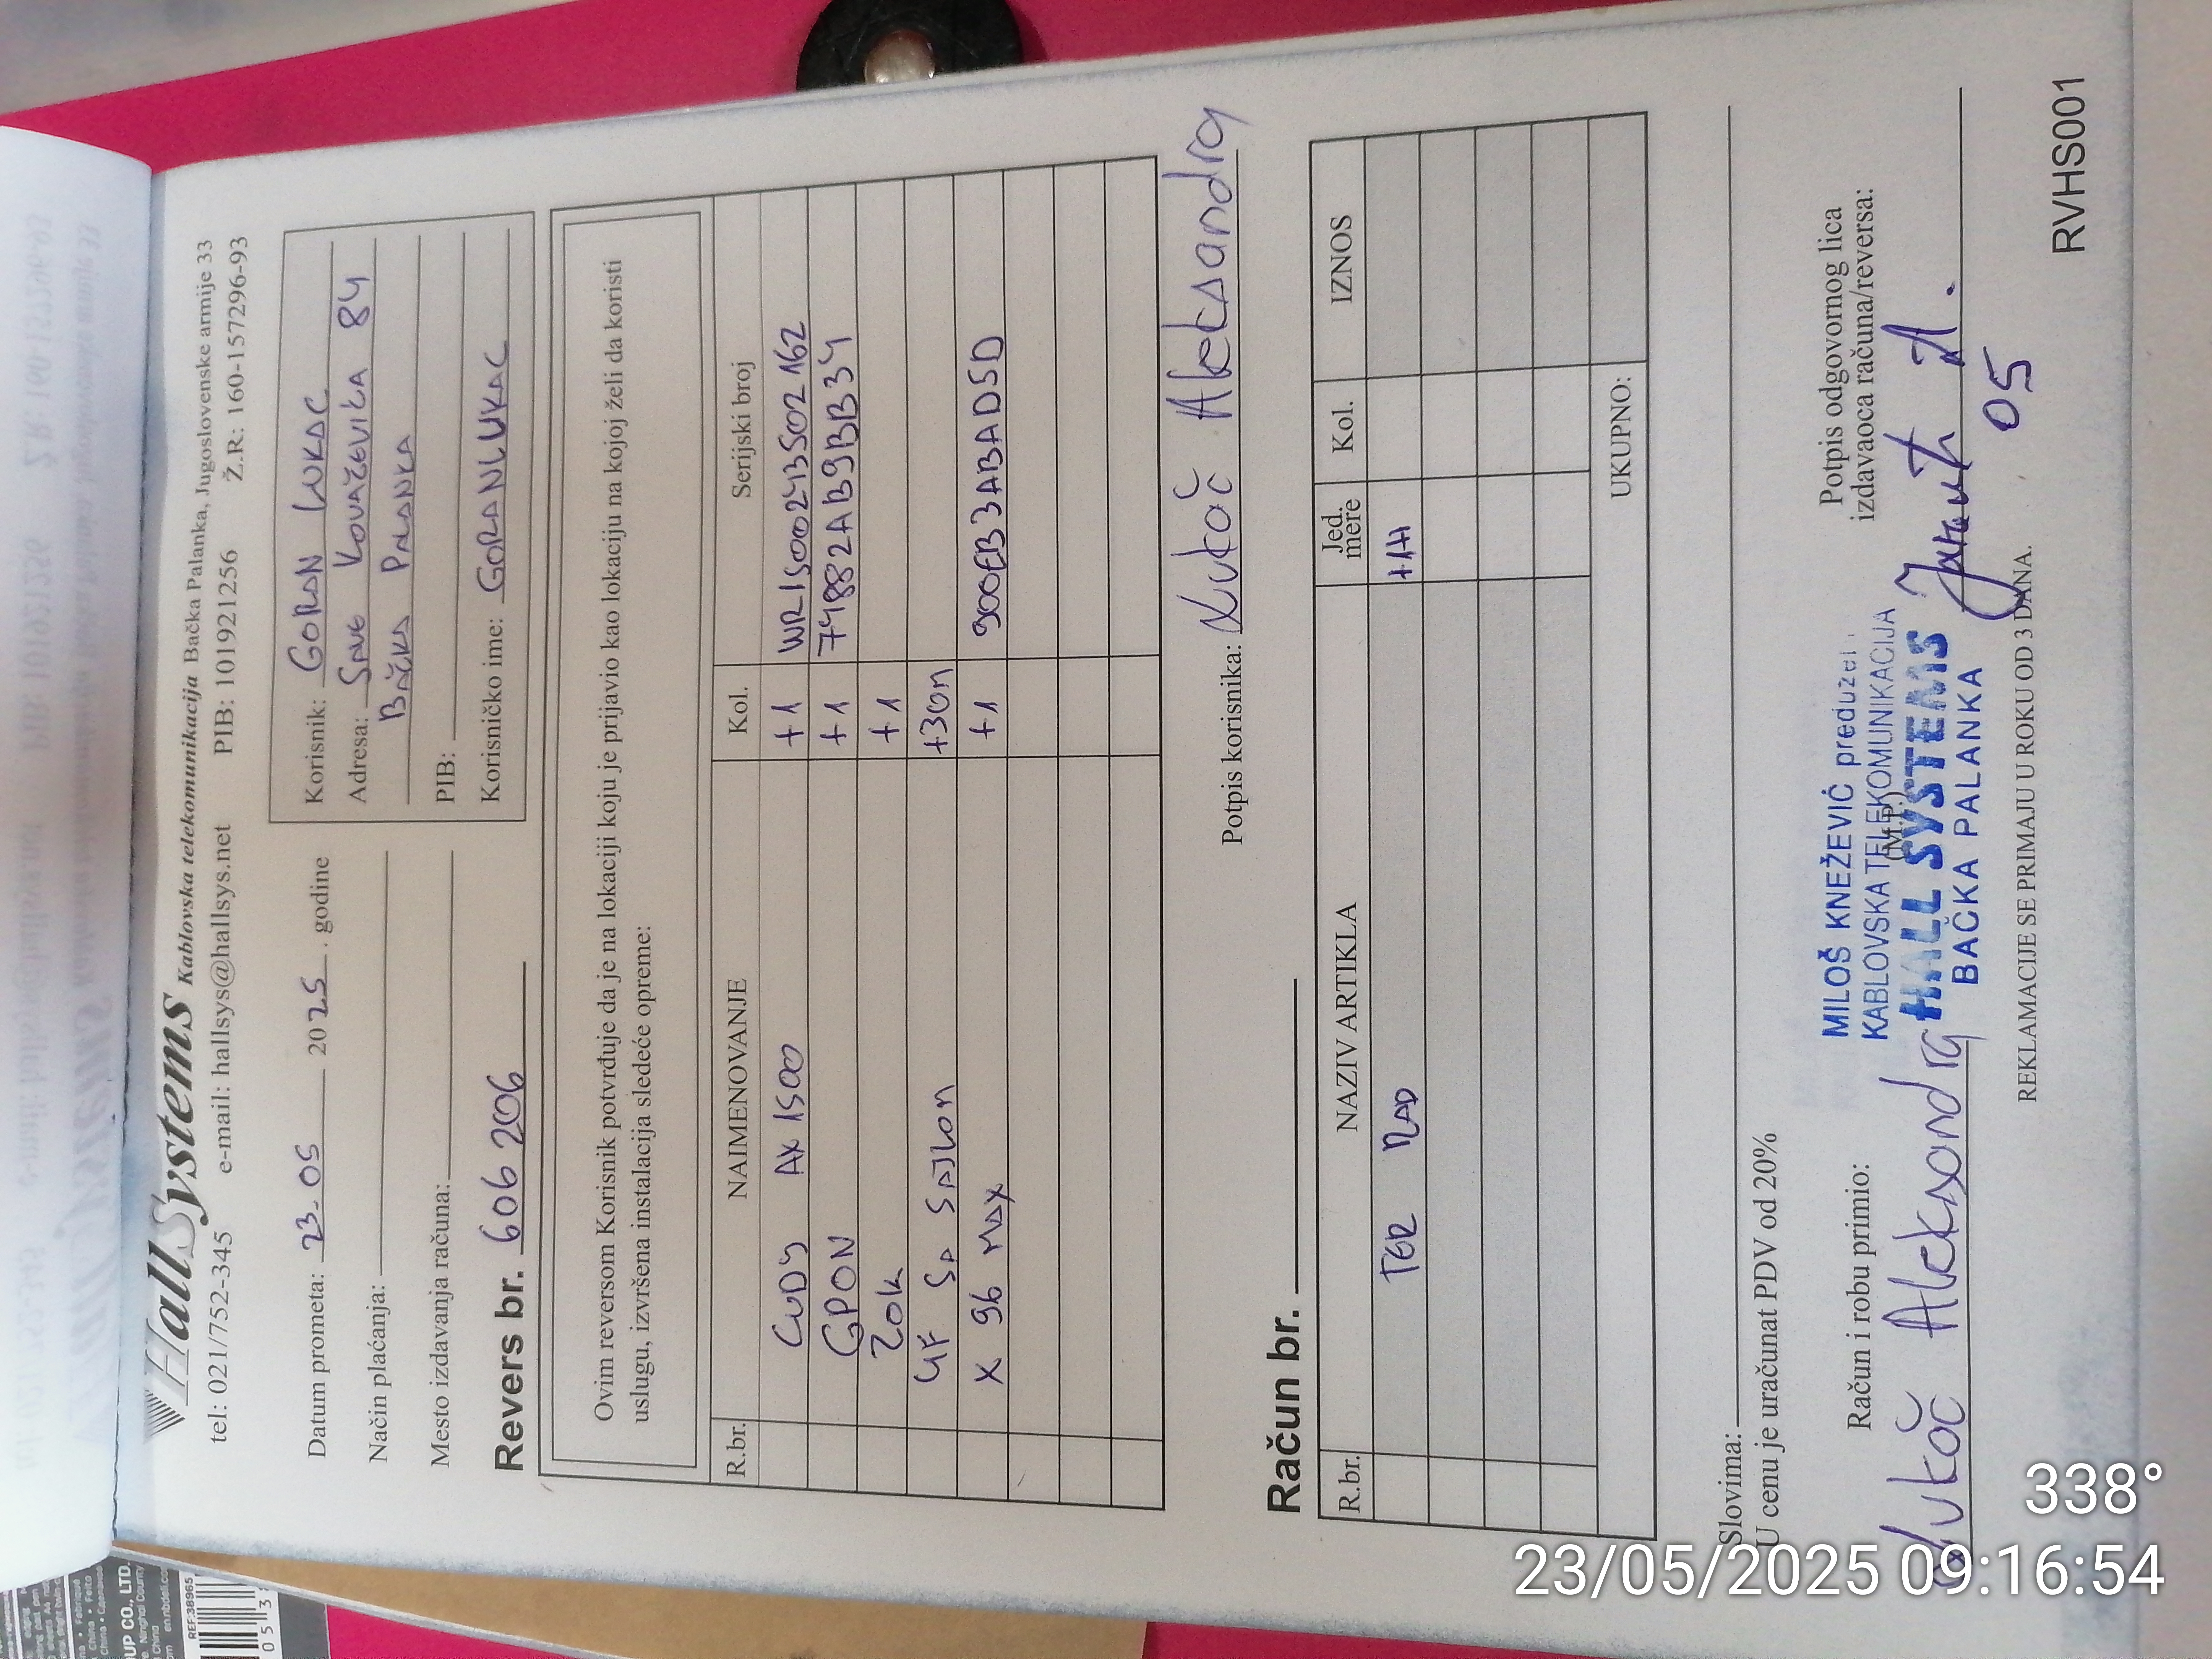 HallSystems Kablovska telekomunikacija Bačka Palanka, Jugoslovenske armije 33
tel: 021/752-345 e-mail: hallsys@hallsys.net PIB: 101921256 Ž.R: 160-157296-93
Datum prometa: 23.05 2025. godine
Način plaćanja:
Mesto izdavanja računa:
Revers br. 606 2006
Korisnik: GORAN LUKAC
Adresa: SAVE KOVAČEVIĆA 84
BAČKA PALANKA
PIB:
Korisničko ime: GORANLUKAC
Ovim reversom Korisnik potvrđuje da je na lokaciji koju je prijavio kao lokaciju na kojoj želi da koristi
uslugu, izvršena instalacija sledeće opreme:
R.br. NAIMENOVANJE Kol. Serijski broj
CUDY AX 1500 +1 WR15002413502162
GPON +1 74882AB9BB34
ZOK +1
UF SA SAJLOM +30m
X 96 MAX +1 900EB3ABAD5D
Potpis korisnika: Lukač Aleksandra
Račun br.
R.br. NAZIV ARTIKLA Jed. mere Kol. IZNOS
TER RAD +1H
UKUPNO:
Slovima:
U cenu je uračunat PDV od 20%
Račun i robu primio:
Lukač Aleksandra
MILOŠ KNEŽEVIĆ preduzet.
KABLOVSKA TELEKOMUNIKACIJA
(M.P.)
HALL SYSTEMS
BAČKA PALANKA
Potpis odgovornog lica
izdavaoca računa/reversa:
05
REKLAMACIJE SE PRIMAJU U ROKU OD 3 DANA.
RVHS001
338°
23/05/2025 09:16:54
OUP CO., LTD.
REF:38965